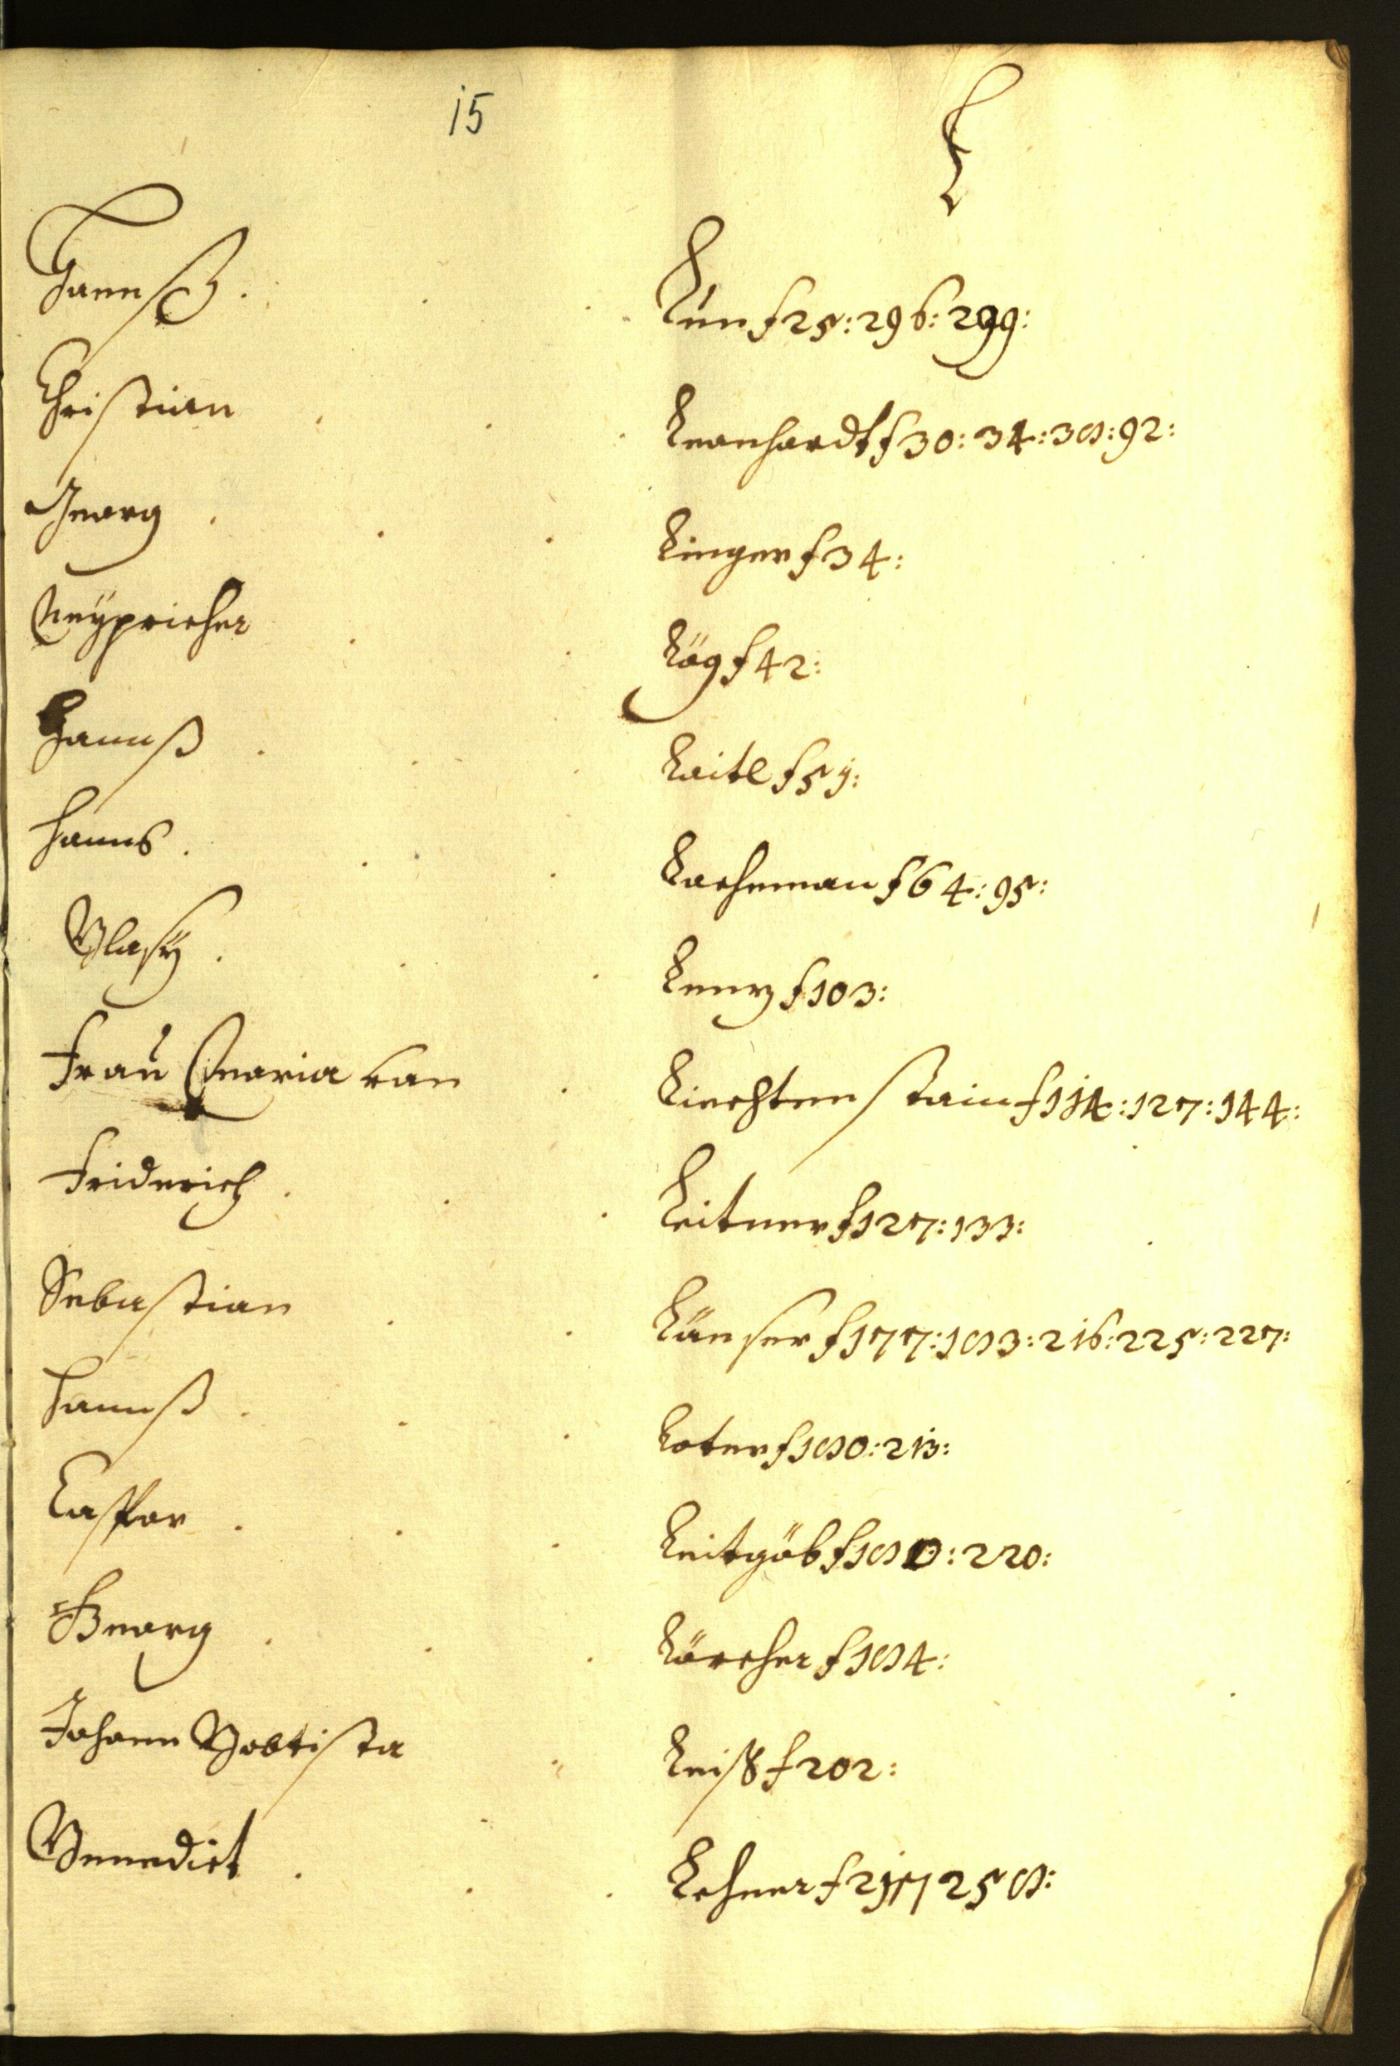 15
L
Hannß. Lun f 25: 296: 299:
Christian Leonhardt f 30: 34: 38: 92:
Georg Linger f 34:
Lög f 42:
Hannß Laitl f 51:
Hanns. Lacheman f 64: 95:
Blasÿ. Lenz f 103:
Frau Maria von Liechtenstain f 114: 127: 144:
Friderich. Leitner f 127: 133:
Sebastian Länser f 177: 183: 216: 225: 227:
Hannß Loter f 180: 213:
Caspar Leitgöb f 180: 220:
Georg Lörcher f 184:
Johann Babtista Leiß f 202:
Benedict Lehner f 217 258: